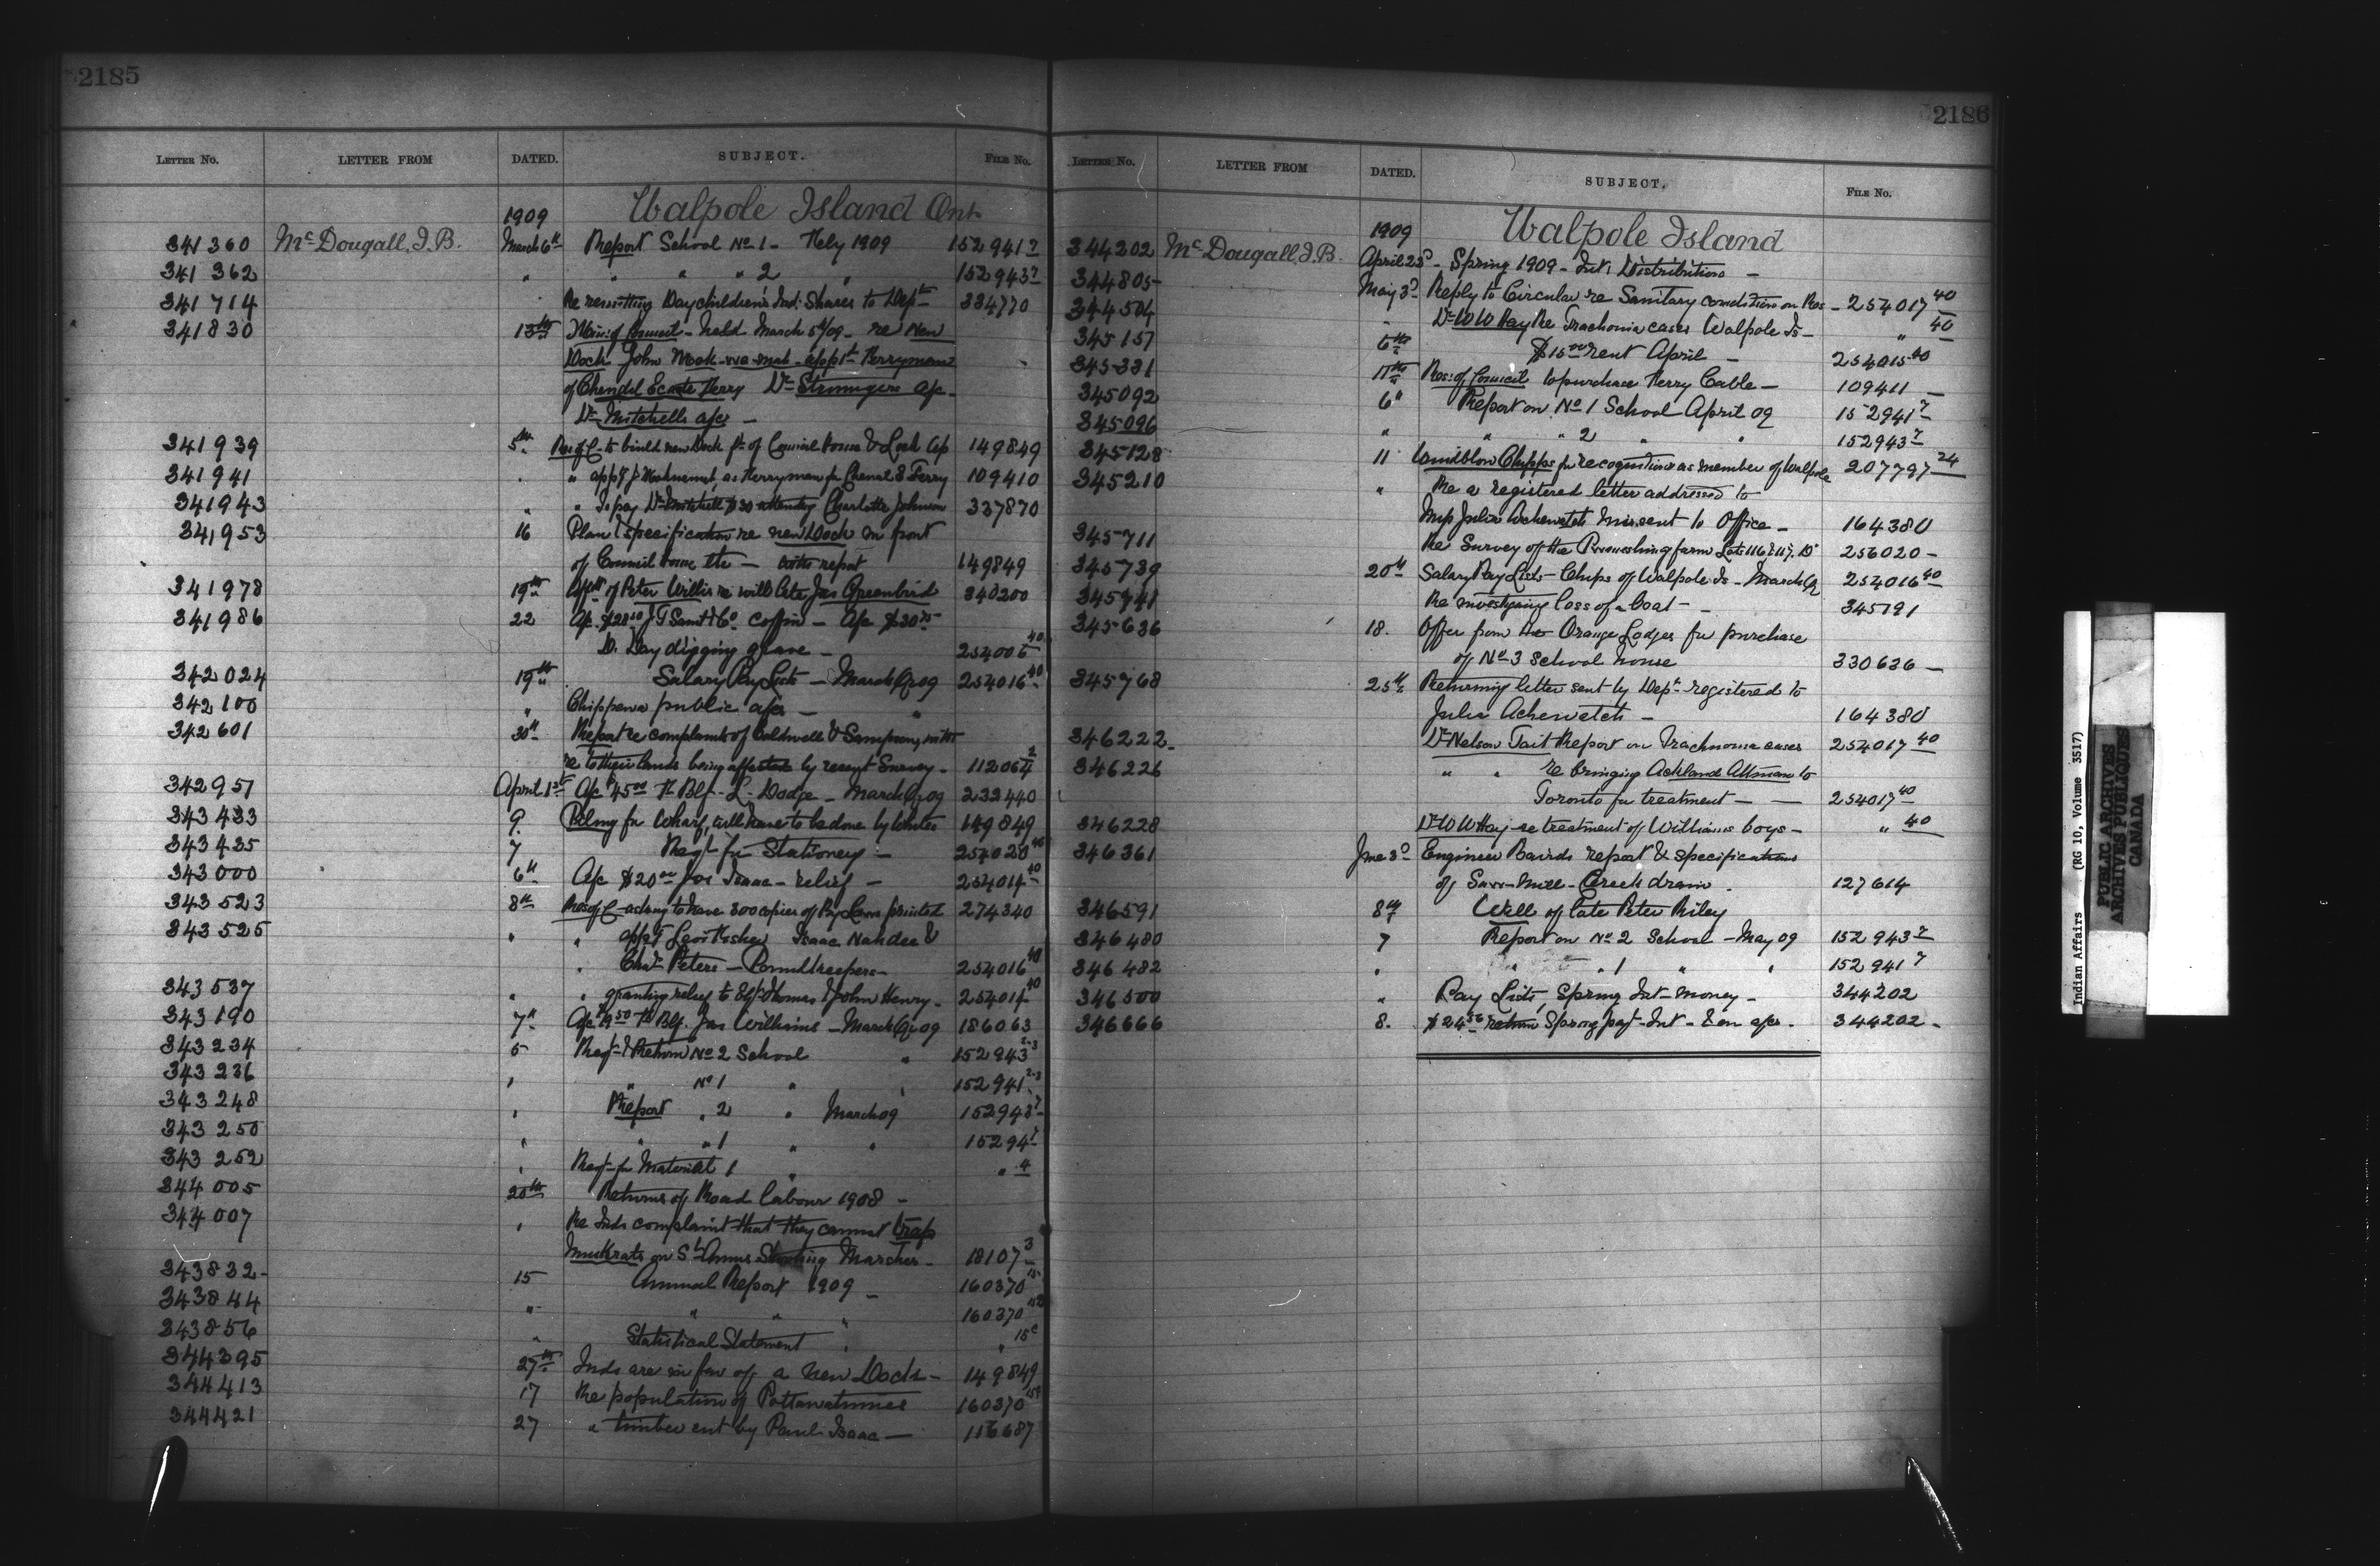 2185
LETTER NO. LETTER FROM DATED. SUBJECT. FILE NO.
Walpole Island Ont
1909
341360 McDougall, J.B. March 6th Report School No 1 - Feby 1909 152941 7
341362 " " " " 2 " 152943 7
341714 Re remitting Day children's Ind: Shares to Dept 334770
341830 13th Min: of Council - held March 5th/09 - re New
Dock John appt Ferryman
of Chenal Ecarte Ferry Dr a/c -
Dr Mitchells a/c -
341939 5th Res of C - to build new Dock ft of Council house & Lock Up 149849
341941 " appt J as Ferryman for Chenal E Ferry 109410
341943 " " To pay Dr Mitchell $30 attending Charlotte Johnson 337870
341953 16 Plan & specification re new Dock in front
of Council house - with report 149849
341978 19th of Peter Willis re will late Jas Greenbird 340200
341986 22 a/c J G coffin - a/c
D. Day digging grave - 254005 40
342024 19th Salary Pay Lists - March Qr 09 254016 40
342100 " Chippewa public a/cs - "
342601 30th Report re complaints of Coldwell & Sampson,
re to their lands being affected by recent Survey - 112064 2
342951 April 1st a/c $45.00 L. Dodge - March Qr 09 232440
343433 9. Piling for Wharf, will have to be done by 149849
343435 7 Reqt for Stationery - 254020 40
343000 6th a/c $20.00 Jos Isaac - relief - 254014 40
343523 8th Res of C asking to have 300 copies of By Laws printed 274340
343525 " " appt Levi Isaac Nahdee &
" Chas Peters - Poundkeepers - 254016 40
343537 " " granting relief to Thomas & John Henry - 254014 40
343190 7th a/c Jas Williams - March Qr 09 186063
343234 5 Reqt & Return No 2 School " 152943 2-3
343236 " " No 1 " 152941 2-3
343248 " Report " 2 " March 09 152943 7
343250 " " " 1 " " 15294 7
343252 " Reqt for Material 1 " " 4
344005 20th Returns of Road labour 1908 -
344007 " Re Inds complaint that they cannot trap
muskrats on St Annes Shooting Marshes - 18107 3
343832 - 15 Annual Report 1909 - 160370 15
343844 " " " " 160370
343856 " Statistical Statement " " 15c
344395 27th Inds are in fav of a new Dock - 149849
344413 17 Re population of Pottawatamies 160370
344421 27 " timber cut by Paul Isaac - 116687
2186
LETTER NO. LETTER FROM DATED. SUBJECT, FILE NO.
Walpole Island
1909
344202 McDougall, J.B. April 23d - Spring 1909 - Int: Distribution -
344805 - May 3d Reply to Circular re Sanitary condition on Res - 254017 40
344504 " Dr W W Hay Re Trachoma cases Walpole Is - " 40
345157 6th $15.00 rent April - 254015 40
345331 11th Res: of Council to purchase Ferry Cable - 109411 -
345092 6th Report on No 1 School April 09 152941 7
345096 " " " 2 " " 152943 7
345128 11 Chipps for recognition as member of Walpole 207797 24
345210 " Re a registered letter addressed to
Mrs Julia sent to Office - 164380
345711 Re Survey of the farm Lots 116 & 117. 256020 -
345739 20th Salary Pay Lists - Chips of Walpole Is - March Qr 254016 40
345741 Re investigating loss of a boat - 345191
345636 18. Offer from the Orange Lodges for purchase
of No 3 School house 330636 -
345768 25th Returning letter sent by Dept registered to
Julia - 164380
346222 - Dr Nelson Tait Report on Trachoma cases 254017 40
346226 " " re bringing Ackland Altman to
Toronto for treatment - - 254017 40
346228 Dr W W Hay re treatment of Williams boys - " 40
346361 June 3d Engineer Bairds report & specifications
of Creek drain. 127614
346591 8th Will of late Peter Riley
346480 7 Report on No 2 School - May 09 152943 7
346482 " " 1 " " 152941 7
346500 " Pay Lists, Spring Int - money - 344202
346666 8. return Spring payt - Int - & on a/cs - 344202 -
Indian Affairs (RG 10, Volume 3517)
PUBLIC ARCHIVES
ARCHIVES PUBLIQUES
CANADA